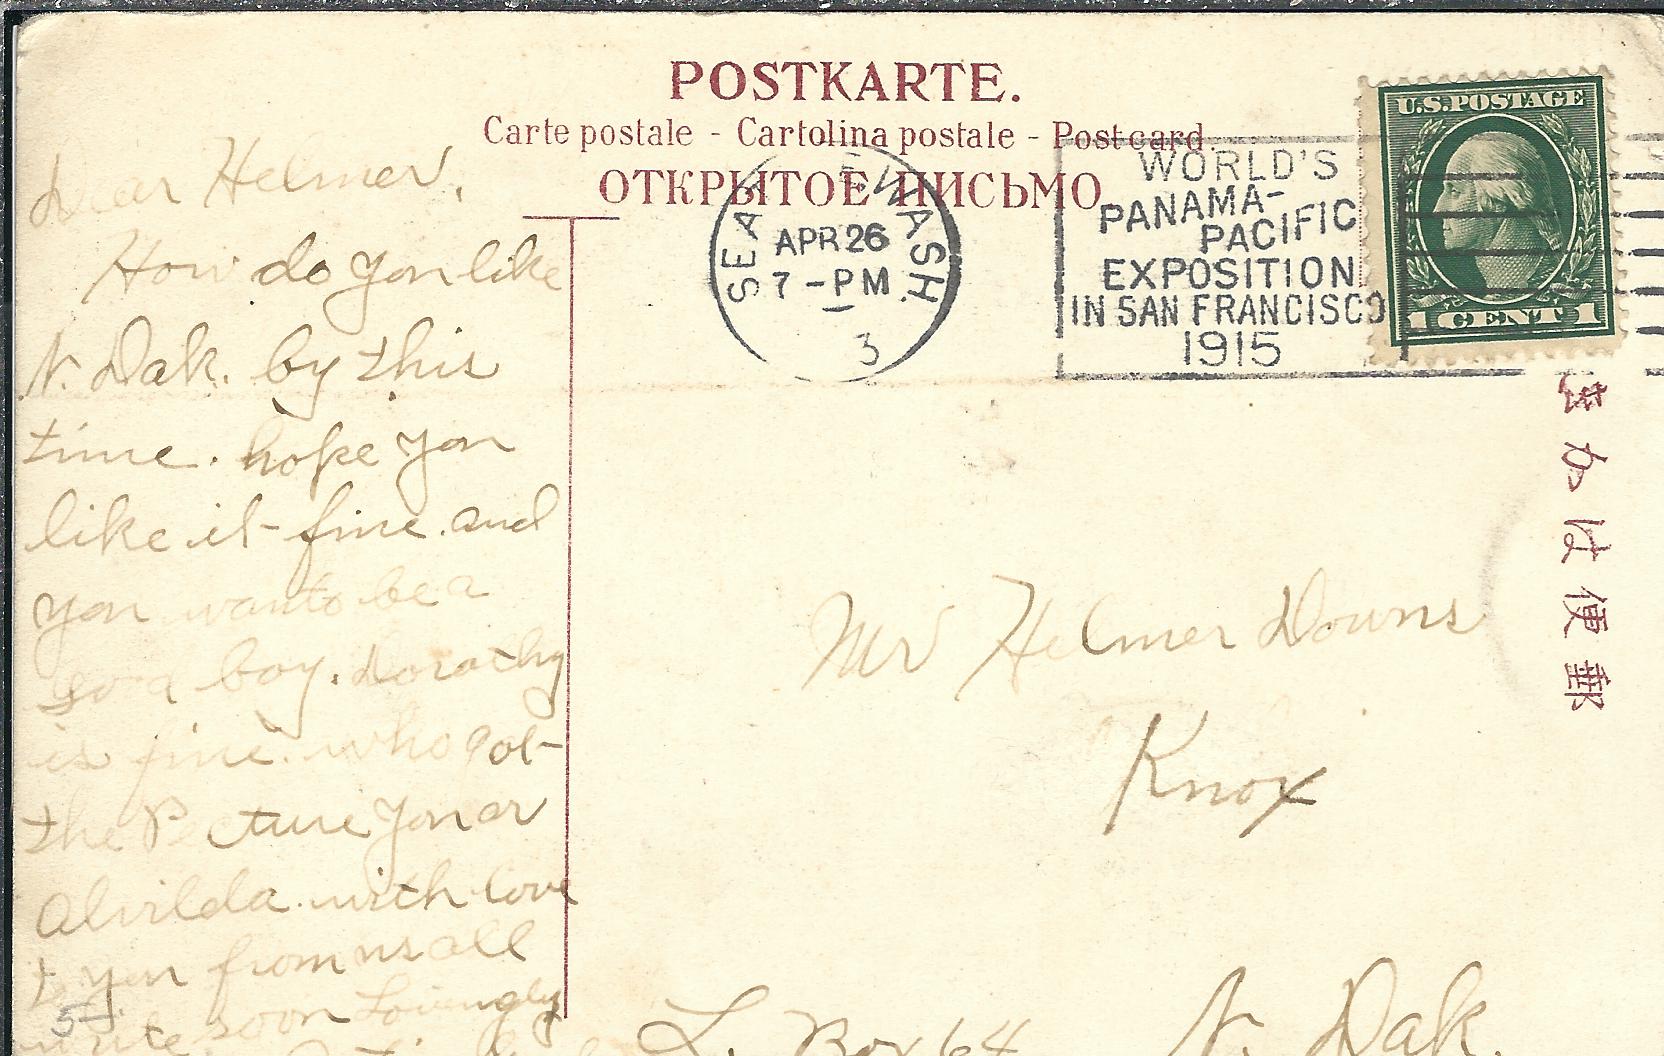 POSTKARTE.
Carte postale - Cartolina postale - Postcard.
ОТКРЫТОЕ ПИСЬМО
U.S. POSTAGE
1 CENT 1
SEA E, WASH.
APR 26
7 - PM
3
WORLD'S
PANAMA-
PACIFIC
EXPOSITION
IN SAN FRANCISCO
1915
郵便はかき
Dear Helmer,
How do you like
N. Dak. by this
time. hope you
like it fine. and
you wanto be a
good boy. Dorothy
is fine. who got
the Picture you or
Alvilda. with love
to you from us all
write soon Lovingly
5-
Mr Helmer Downs
Knox
L. Box 64 N. Dak.